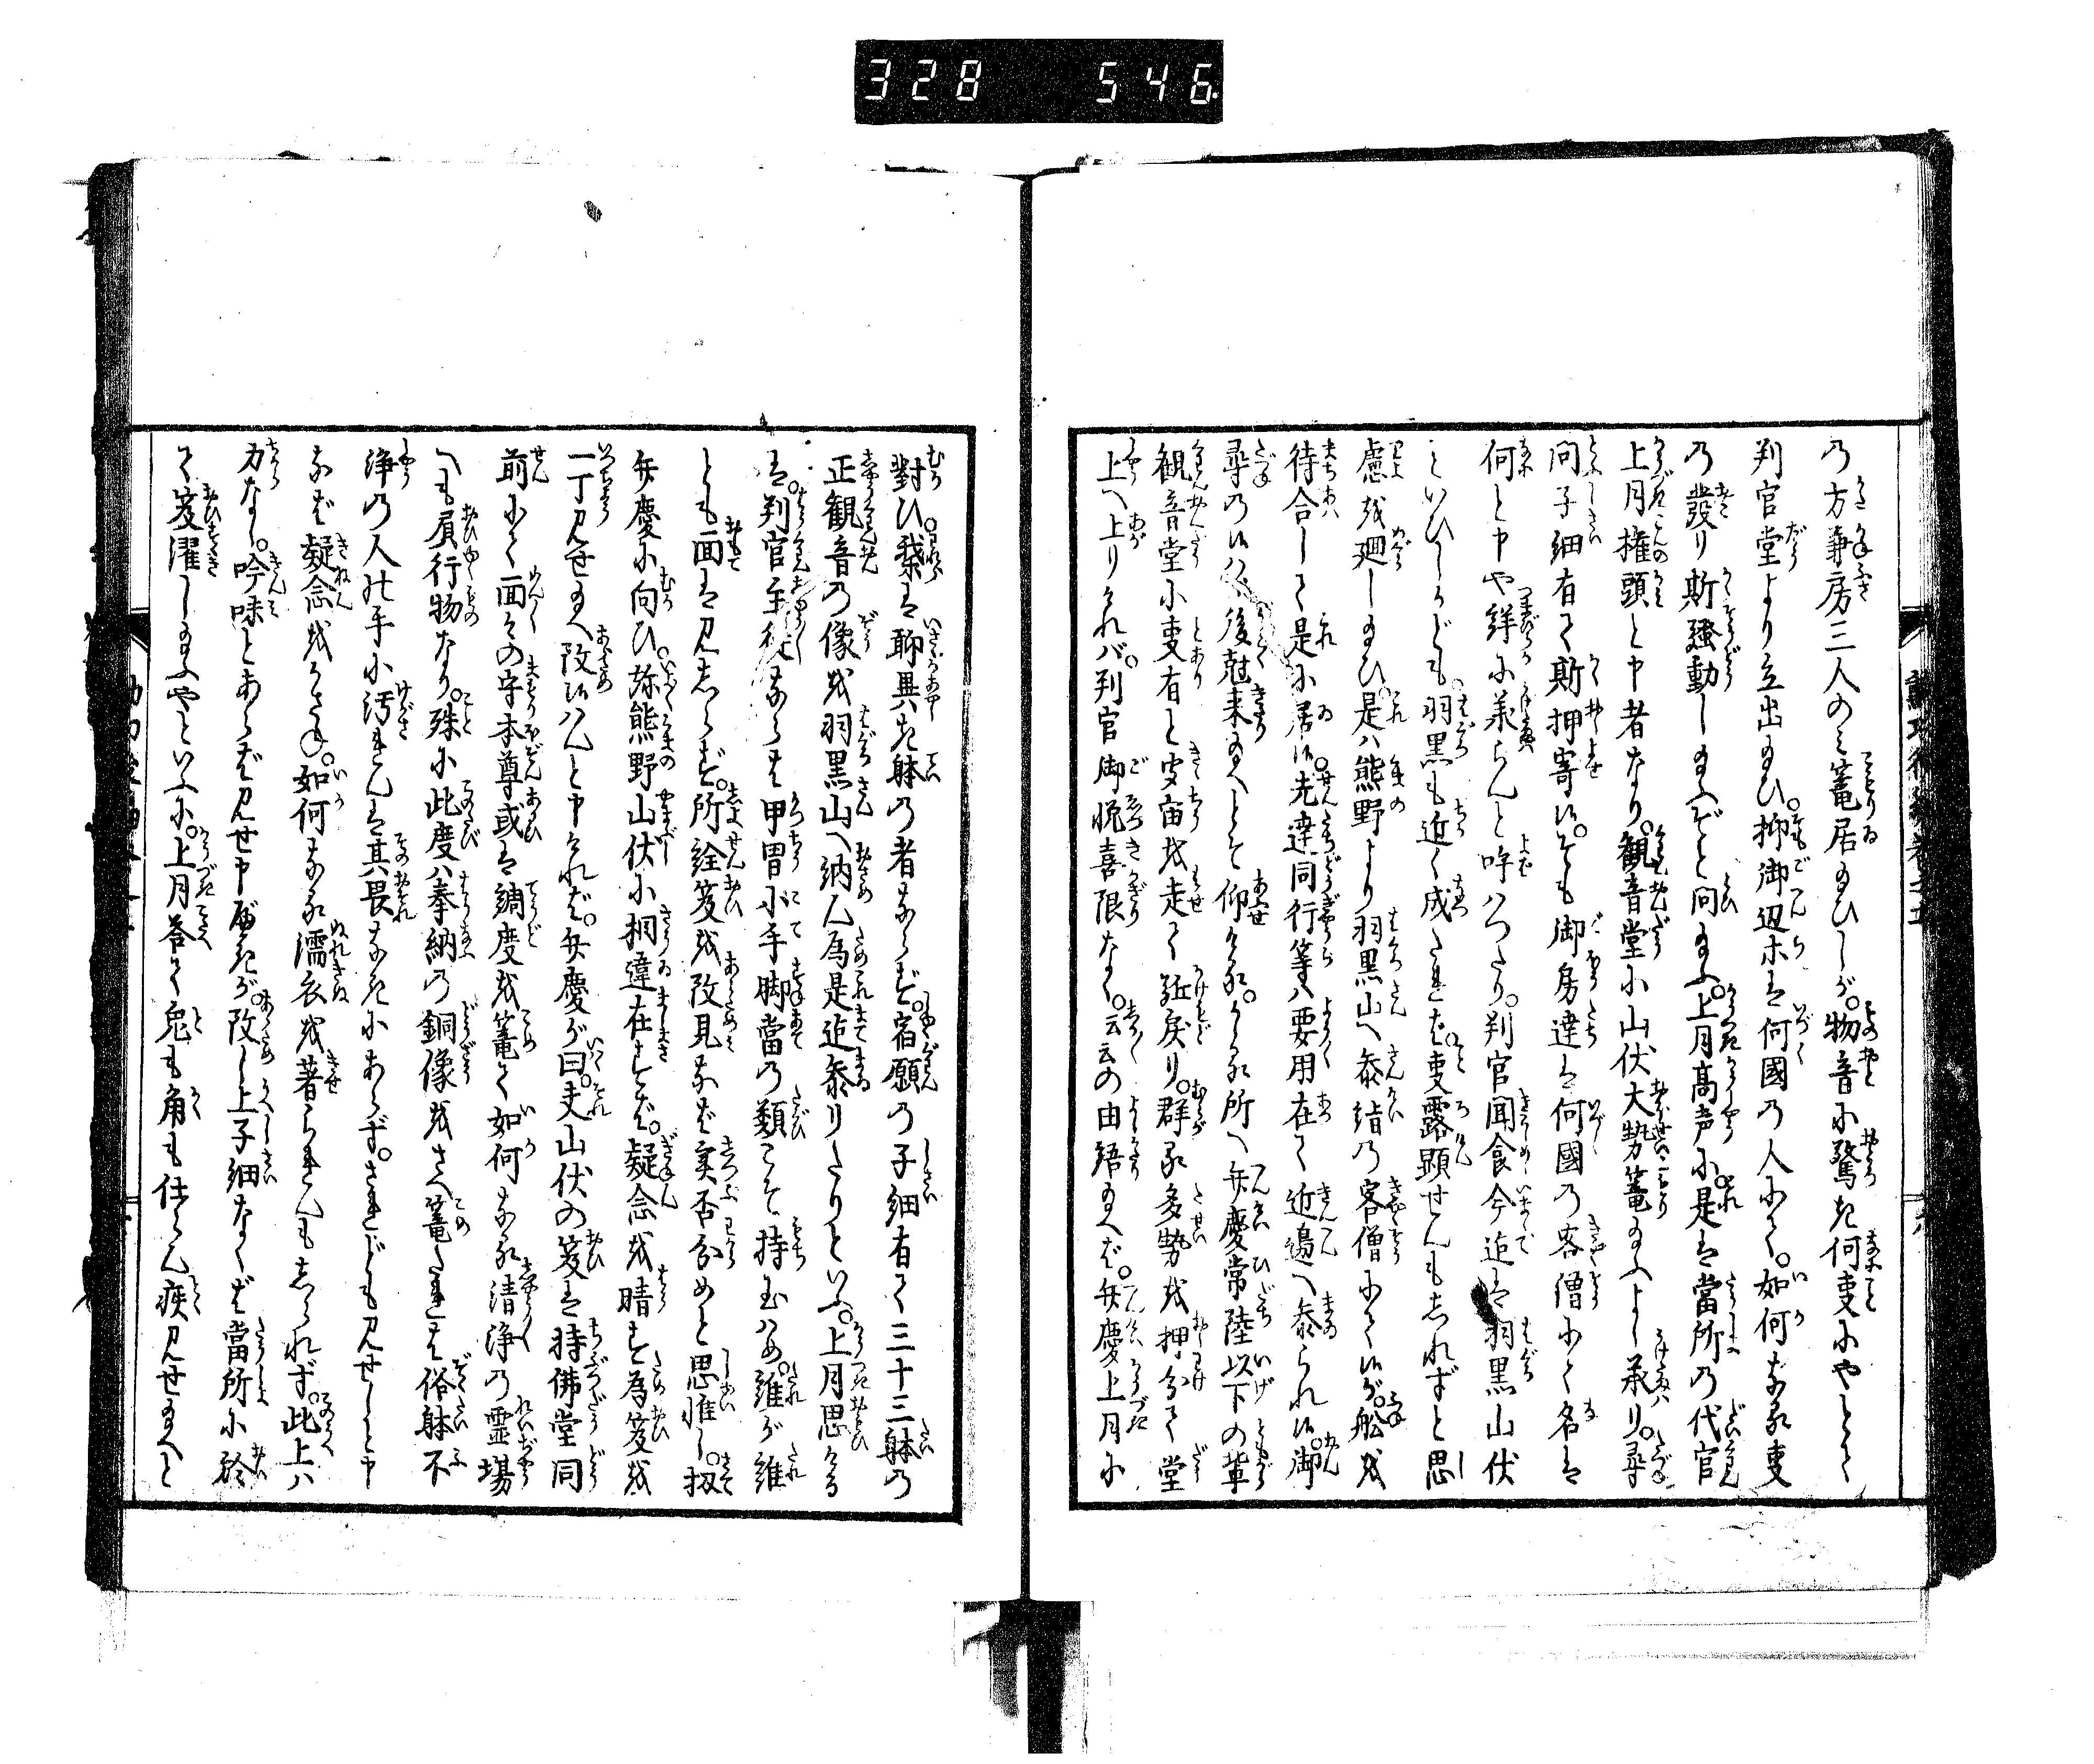 328 546
乃方兼房三人のミ篭居玉ひしが。物音に驚き何叓にやとて
判官堂より立出玉ひ。抑御辺ホは何國の人にて。如何なる叓
乃發り斯騒動し玉へぞと問玉ふ。上月高声に。是は當所の代官
上月権頭と申者なり。観音堂に山伏大勢篭玉ふよし承り。尋
問子細有て斯押寄候。そも御房達は何國の客僧にて名は
何と申や詳に承らんと呼ハつたり。判官聞食今迄は羽黒山伏
といひしかども。羽黒も近く成たれば叓露顕せんもしれずと思
慮を廻し玉ひ。是ハ熊野より羽黒山へ参詣の客僧にて候が。舩を
待合して是に居候。先達同行等ハ要用在て近邉へ参られ候。御
尋の候ハヾ後尅来玉へとぞ仰ける。かゝる所へ弁慶常陸以下の輩
観音堂に叓有と聞宙を走て馳戻り。群る多勢を押分て堂
上へ上りければ。判官御悦喜限なく。云云の由語玉へば。弁慶上月に
對ひ。我〻は聊異き躰の者ならず。宿願の子細有て三十三躰の
正観音の像を羽黒山へ納ん為是迄参りたりといふ。上月思ける
は。判官主従ならば甲冑小手脚當の類こそ持玉ハめ。誰が誰
とも面は見しらず。所詮笈を改見なば実否分めと思惟し。扨
弁慶に向ひ。弥熊野山伏に相違在まさずば。疑念を晴さず為笈を
一丁見せ玉へ改候ハんと申ければ。弁慶が曰。夫山伏の笈は持佛堂同
前にて面〻の守本尊或は調度を篭て如何なる清浄の霊場
へも肩行物なり。殊に此度ハ奉納の銅像をさへ篭たれば俗躰不
浄の人の手に汚されんは其畏なきにあらず。されども見せじと申
なば疑念をうさん。如何なる濡衣を著られんもしられず。此上ハ
力なし。吟味とあらば見せ申べきが。改し上子細なくば當所に於
て笈濯し玉ふやといふに。上月答て兎も角も仕らん疾見せ玉へと